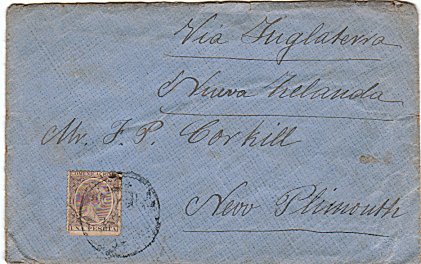 Via Inglaterra
Nueva Zelanda
Mr. F. P. Corkill
New Plimouth
COMUNICACIONES
UNA PESETA